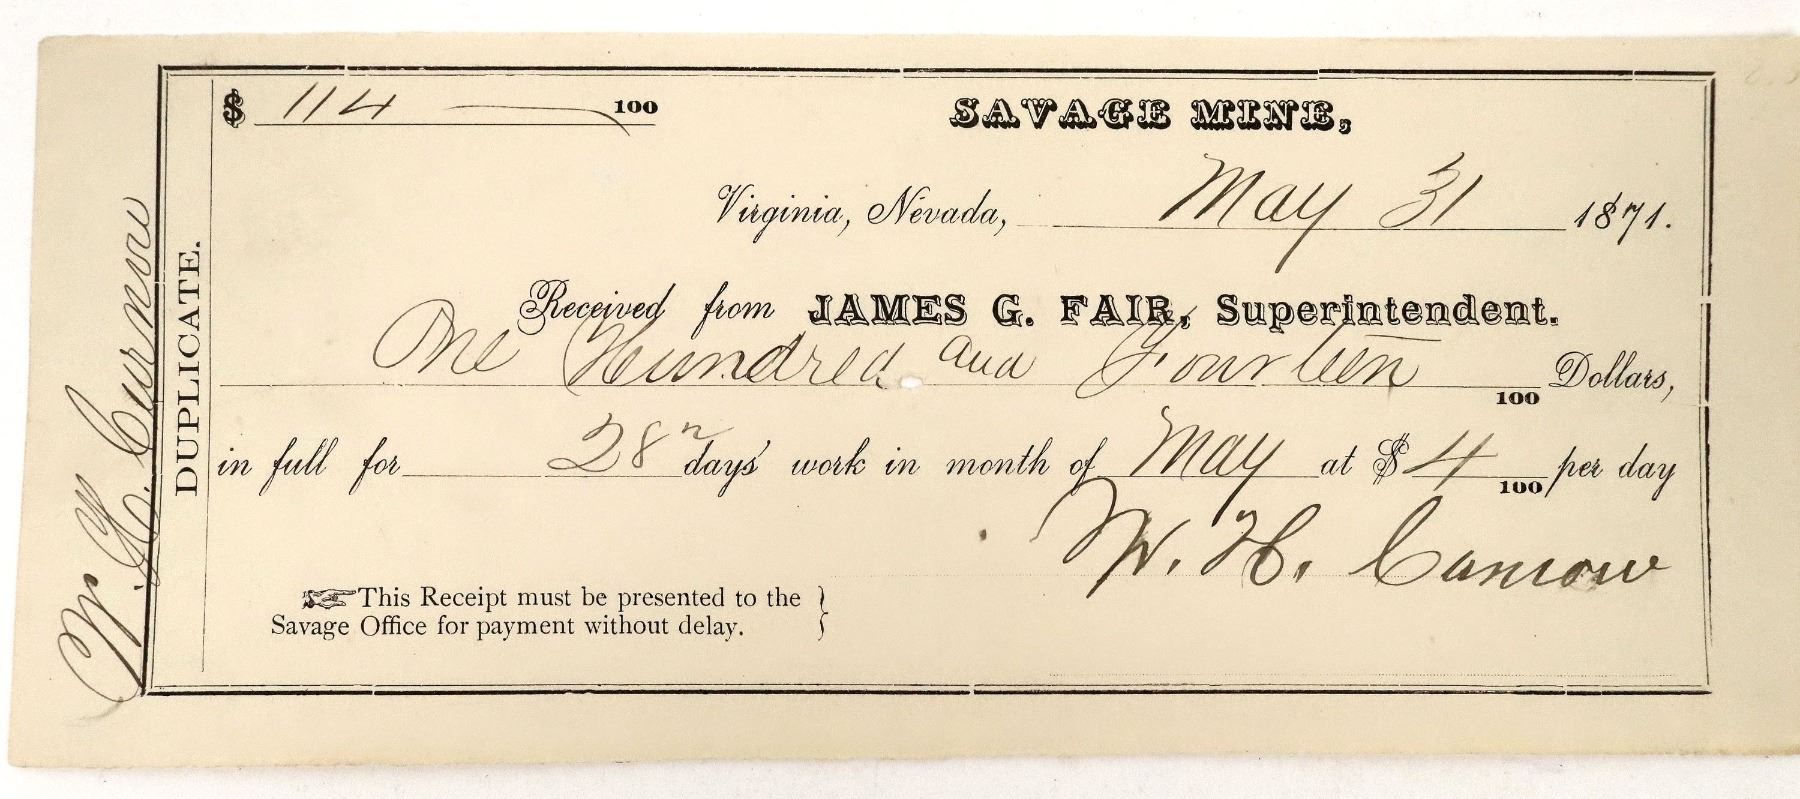 $ 114 — 100
SAVAGE MINE,
Virginia, Nevada, May 31 1871.
Received from JAMES G. FAIR, Superintendent.
One Hundred and Fourteen 100 Dollars,
in full for 28 days' work in month of May at $ 4 100 per day
W. H. Curnow
☞ This Receipt must be presented to the
Savage Office for payment without delay.
DUPLICATE.
W. H. Curnow